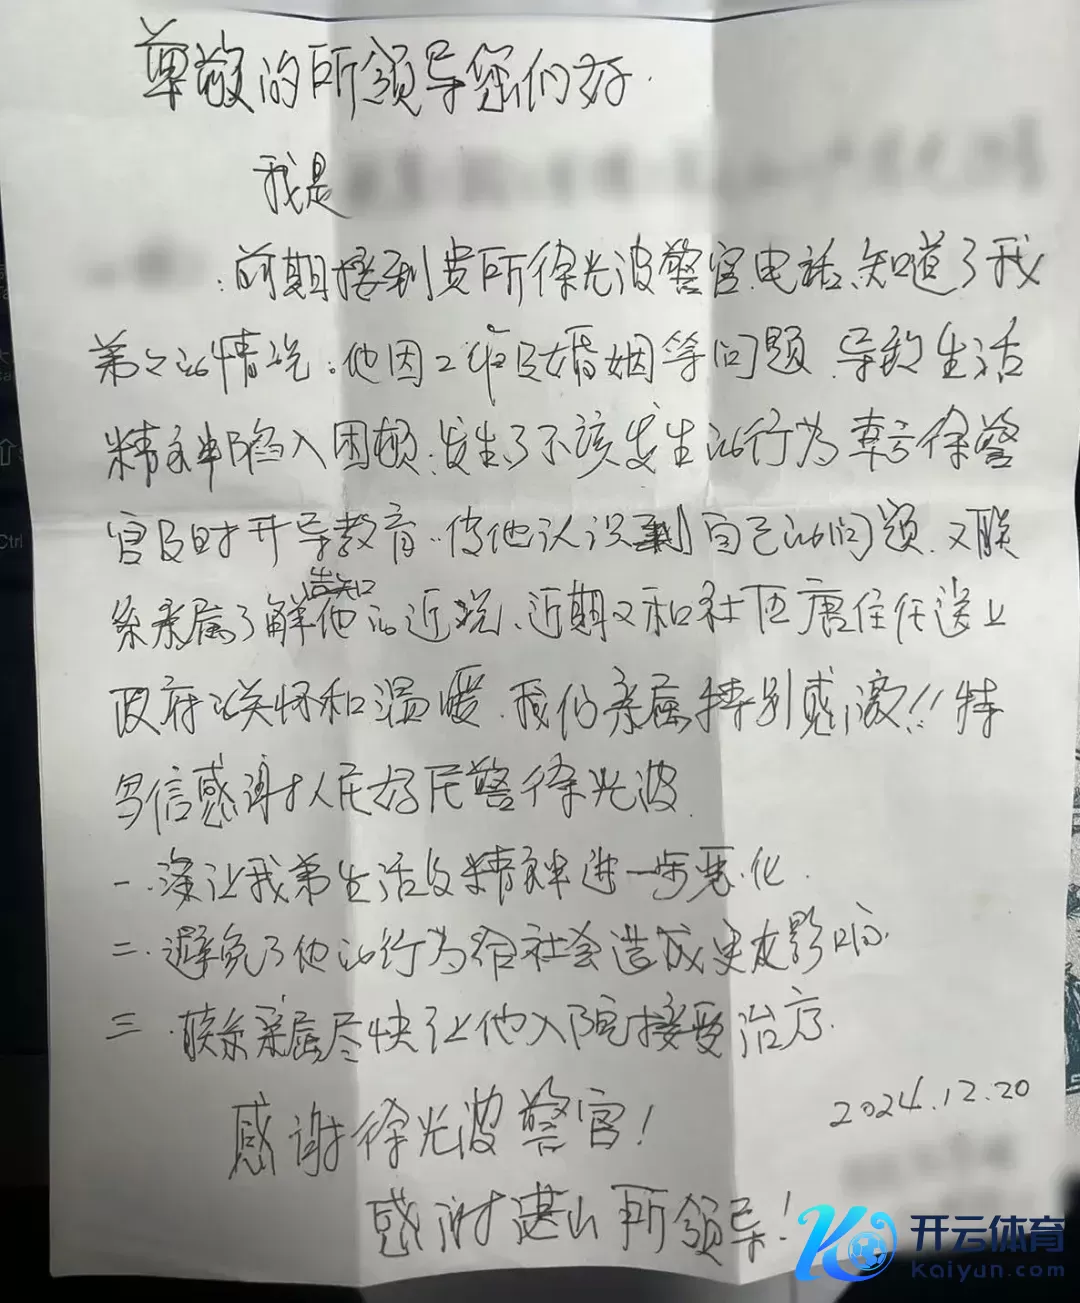 尊敬的所领导您们好.
我是
前期接到贵所徐光波警官电话、知道了我
弟弟的情况。他因工作及婚姻等问题、导致生活
精神陷入困顿.发生了不该发生的行为幸亏徐警
官及时开导教育.使他认识到自己的问题.又联
系亲属了解告知他的近况、近期又和社区唐主任送上
政府关怀和温暖.我们亲属特别感激!!特
写信感谢人民好民警徐光波.
一.没让我弟生活及精神进一步恶化.
二.避免了他的行为给社会造成更大影响.
三.联系亲属尽快让他入院接受治疗.
2024.12.20
感谢徐光波警官!
感谢湛山所领导!
开云体育
kaiyun.com
Ctrl